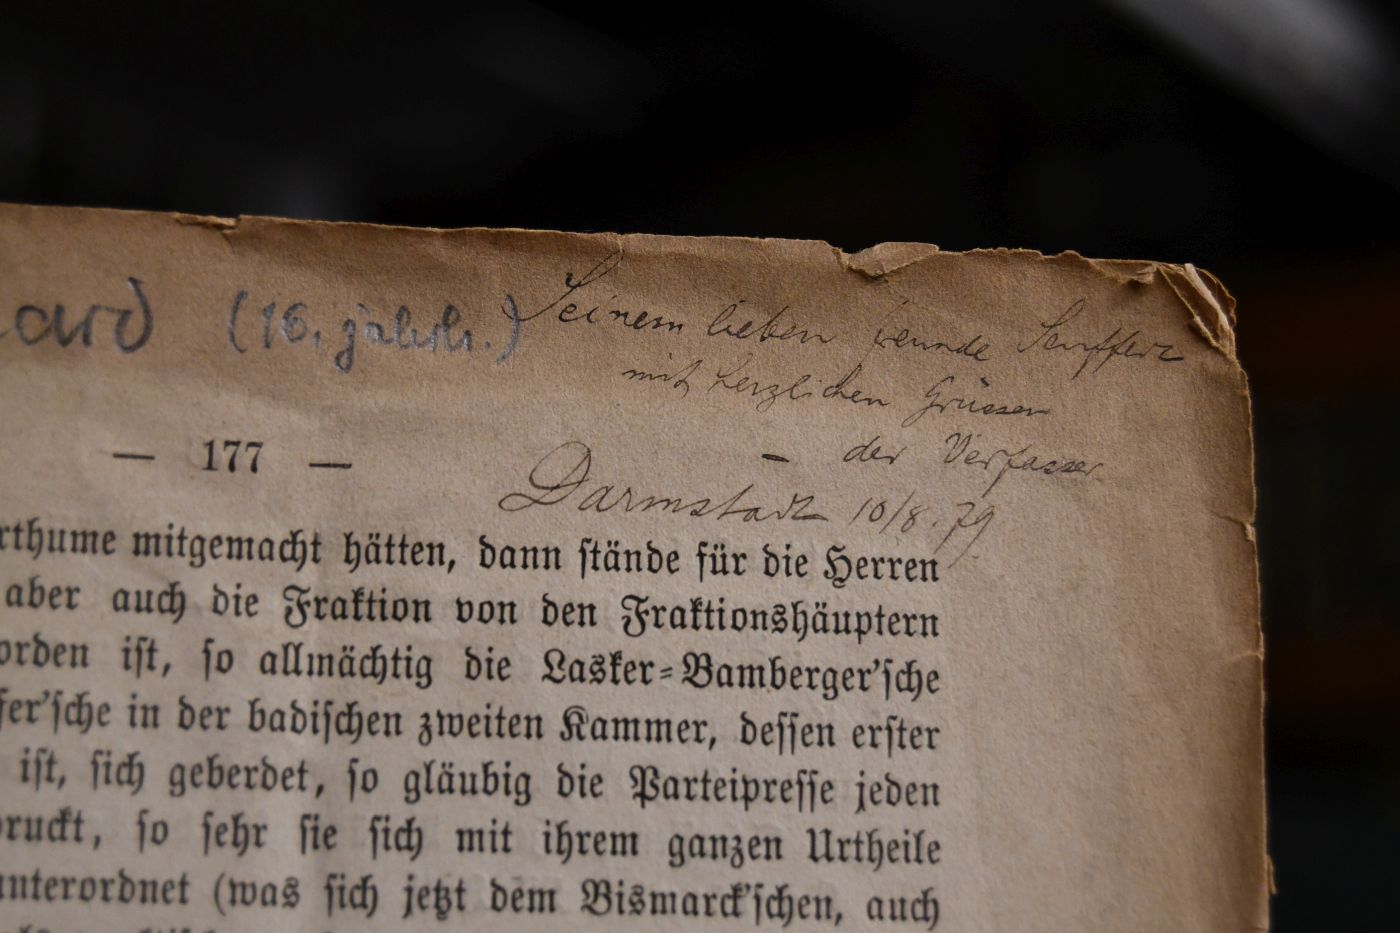 ard (16. jahrh.)
Seinem lieben Freunde Seuffert
mit herzlichen Grüssen
- der Verfasser.
Darmstadt 10/8. 79
— 177 —
rthume mitgemacht hätten, dann stände für die Herren
aber auch die Fraktion von den Fraktionshäuptern
orden ist, so allmächtig die Lasker-Bamberger'sche
fer'sche in der badischen zweiten Kammer, dessen erster
ist, sich geberdet, so gläubig die Parteipresse jeden
druckt, so sehr sie sich mit ihrem ganzen Urtheile
unterordnet (was sich jetzt dem Bismarck'schen, auch